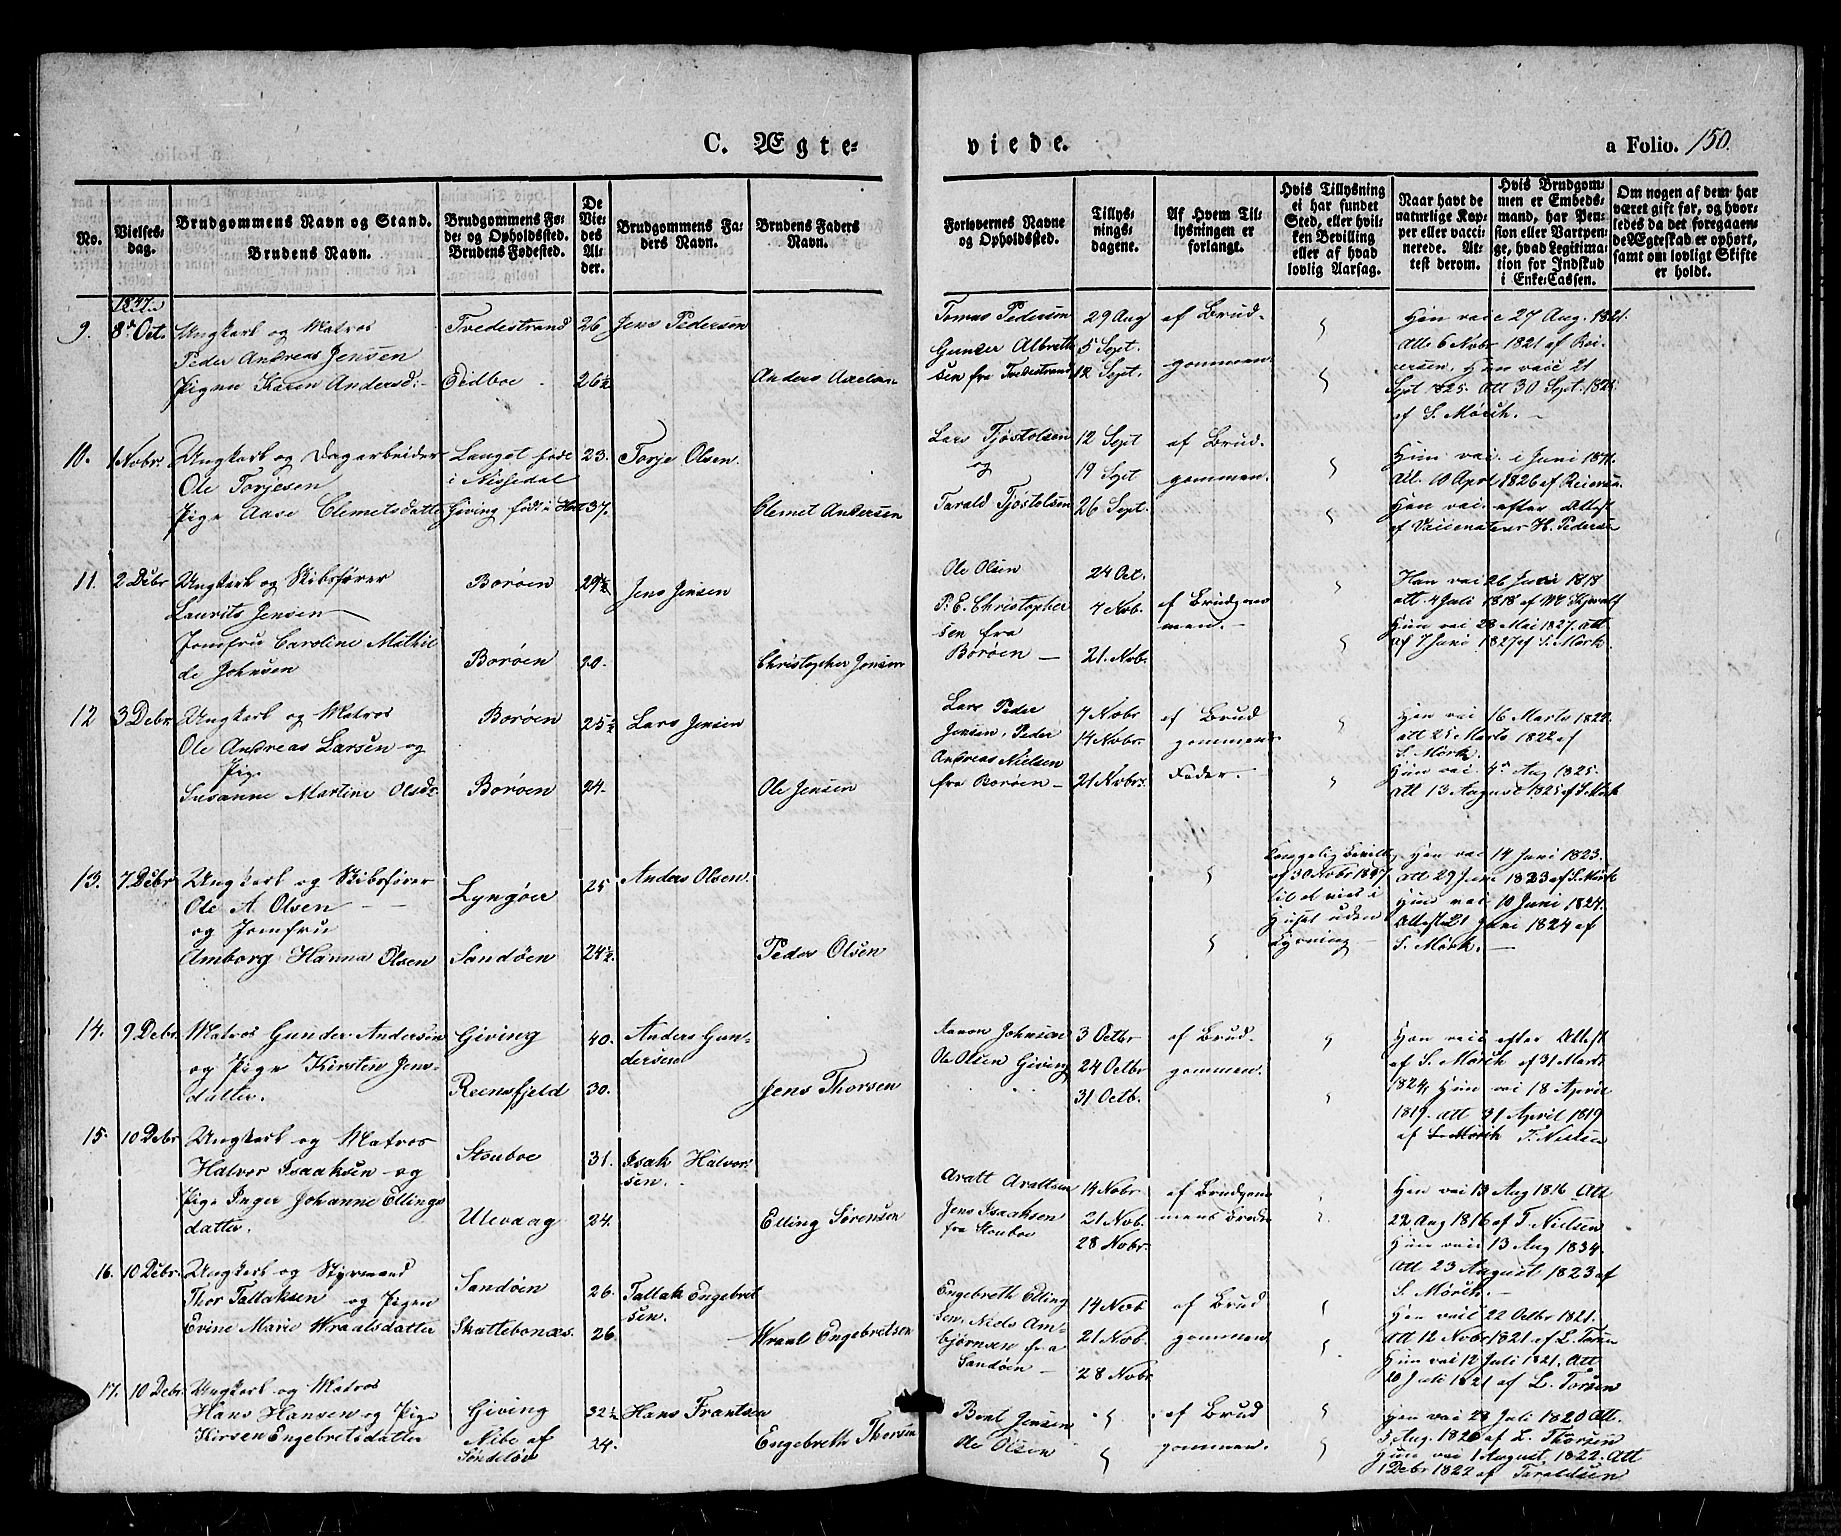 C. Ægte-
viede.
a Folio. 150.
No.
Vielses-
dag.
Brudgommens Navn og Stand.
Brudens Navn.
Brudgommens Fø-
de- og Opholdssted.
Brudens Fødested.
De
Vie-
des
Al-
der.
Brudgommens Fa-
ders Navn.
Brudens Faders
Navn.
Forlovernes Navne
og Opholdssted.
Tillys-
nings-
dagene.
Af Hvem Til-
lysningen er
forlangt.
Hvis Tillysning
ei har fundet
Sted, eller hvil-
ken Bevilling
eller af hvad
lovlig Aarsag.
Naar havt de
naturlige Kop-
per eller vacci-
nerede. At-
test derom.
Hvis Brudgom-
men er Embeds-
mand, har Pen-
sion eller Vartpen-
ge, hvad Legitima-
tion for Indskud
i Enke-Cassen.
Om nogen af dem har
været gift før, og hvor-
ledes da det foregaaen-
de Ægteskab er ophørt,
samt om lovligt Skifte
er holdt.
1847.
9. 8de Oct. Ungkarl og Matros
Peder Andreas Jensen
Pigen Karen Andersd:
Tvedestrand 26 Jens Pedersen
Eidboe - 26½ Anders Axelsen
Tomas Pedersen
Gunder Albreth
sen fra Tvedestrand
29 Aug
5 Sept.
12 Sept.
af Brud-
gommen.
Han vac 27 Aug. 1821.
Att. 6 Nobr 1821 af Rei-
ersen. Hun vac 21
Sept 1825. Att 30 Sept. 1825.
af S. Mørch.
10. 1 Nobr. Ungkarl og Dagarbeider
Ole Torjesen
Pige Aase Clemetsdatter
Langøl født
i Nissedal
Giving født i Holt
23.
37.
Torje Olsen.
Clemet Andersen
Lars Tjøstolsen
og
Tarald Tjøstolsen
12 Sept
19 Sept
26 Sept.
af Brud-
gommen.
Att. 10 Apr 1826 af Reierson.
Han vac. efter Attest
af Vaccenateur H. Pedersen
11. 2 Debr Ungkarl og Skibsfører
Laurits Jensen
Jomfru Caroline Mathil
de Johnsen
Borøen 29½ Jens Jensen
Borøen 20. Christopher Jonsen
Ole Olsen
P. E. Christopher
sen fra
Borøen
24 Oct.
7 Nob.
21. Nob.
af Brudgom
men.
Han vac 26 Juni 1818
att. 4 Juli 1818 af
Hun vac 28 Mai 1827. Att
af 7 Juni 1827 af S. Mørk.
12 3 Debr Ungkarl og Matros
Ole Andreas Larsen og
Pige
Susanne Martine Olsdr.
Borøen 25½ Lars Jensen
Borøen 24. Ole Jensen
Lars Peder
Jensen, Peder
Andreas Nielsen
fra Borøen
7 Nobr
14 Nobr.
21 Nobr.
af Brud
gommens
Fader.
Han vac 16 Marts 1822.
att 25 Marts 1822 af
S. Mørk.
Hun vac. 4de Aug 1825.
Att 13 August 1825 af S. Mørk
13. 7 Debr Ungkarl og Skibsfører
Ole A. Olsen
og Jomfru
Amborg Hanna Olsen
Lyngøer 25 Anders Olsen.
Sandøen 24½. Peder Olsen
Kongelig Bevill.
af 30 Nobr 1847
til at vies i
Huset uden
Lysning
Han vac 14 Juni 1823.
Att 29 Juni 1823 af S. Mørk
Hun vac 10 Juni 1824.
Attest 21 Juni 1824 af
S. Mørk.
14. 9 Debr Matros Gunder Andersen
og Pige Kirsten Jens-
datter.
Giving 40. Anders Gun-
dersen
Reensfjeld 30. Jens Thorsen
Aaron Johnsen
Ole Olsen Giving
3 Octbr
24 Octbr
31 Octb.
af Brud.
gommen.
Han vac efter Attest
af S. Mørch af 31 Marts
1824, Hun vac 18 April
1819. Att 21 April 1819
af S. Mørch T. Nielsen
15. 10 Debr Ungkarl og Matros
Halvor Isaaksen og
Pige Inger Johanne Ellings
datter.
Stouboe 31. Isak Halvor
sen.
Ulevaag 24. Elling Sørensen
Aratt Arattsen
Jens Isaaksen
fra Stouboe
14 Nobr
21 Nob.
28 Nobr.
af Brudgom
mens Broder
Han vac 13 Aug 1816. Att
22 Aug 1816 af T. Nielsen
Hun vac 13 Aug 1834.
Att 23 August 1823 af
S. Mørch.
16. 10 Debr. Ungkarl og Styrmand
Thor Tallaksen og Pigen
Evine Marie Wraalsdatter
Sandøen 26. Tallak Engebret
sen.
Skottebonæs. 26. Wraal Engebretsen
Engebreth Elling
sen, Niels Am-
bjørnsen fra
Sandøen
14 Nob
21 Nob.
28 Nobr
af Brud
gommen
Han vac 22 Octbr 1821.
Att 12 Nobr 1821 af L. Torsen
Hun vac 12 Juli 1821. Att
20 Juli 1821 af L. Torsen
17. 10 Debr. Ungkarl og Matros
Hans Hansen og Pige
Kirsten Engebretsdatter
Giving 32½ Hans Frantsen
Nibe af
Søndeløv
24. Engebreth Thorsen
Bent Jensen
Ole Olsen
af Brud
gommen.
Han vac 28 Juli 1820 Att.
3 Aug. 1820 af L. Thorsen
Hun vac 1 August 1822. Att
1 Debr 1822 af Taraldsen